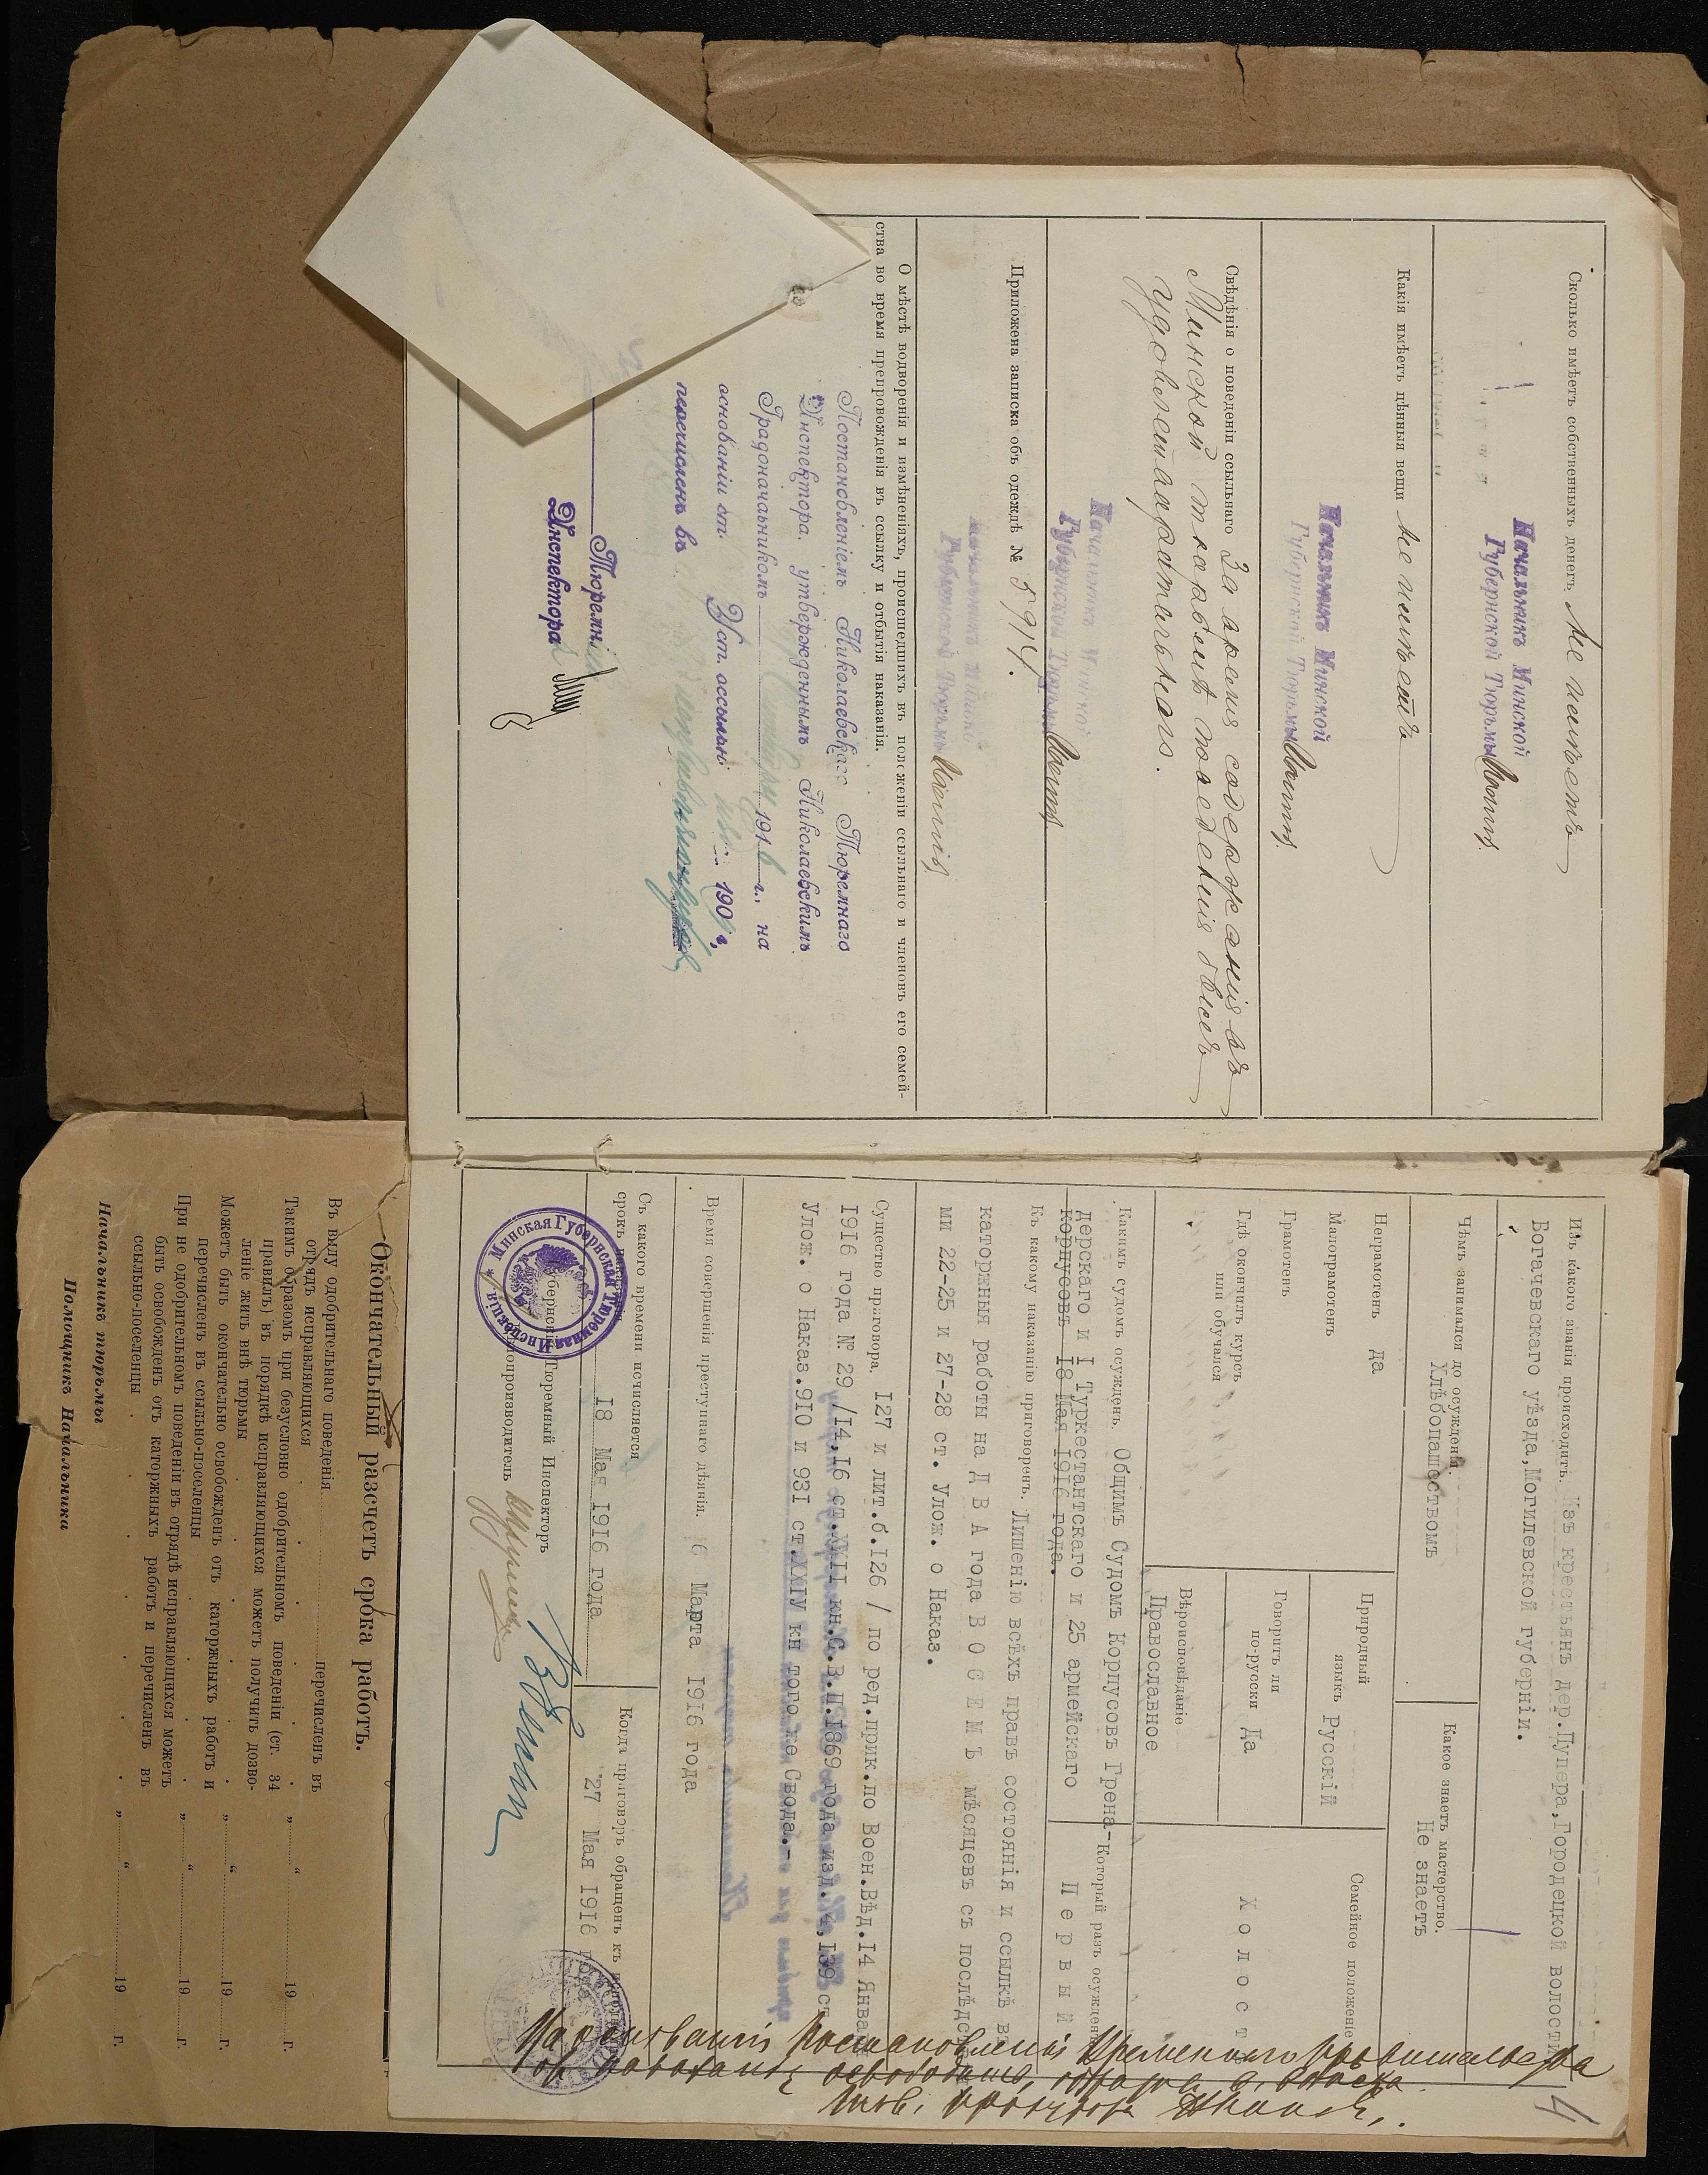 Сколько имѣетъ собственныхъ денегъ. Не имѣетъ
Начальникъ Минской
Губернской Тюрьмы
Какія имѣетъ цѣнныя вещи Не имѣетъ
Начальникъ Минской
Губернской Тюрьмы
Свѣдѣнія о поведеніи ссыльнаго За время содержанія въ
Минской тюрьмѣ поведенія былъ
удовлетворительнаго.
Начальникъ Минской
Губернской Тюрьмы
Приложена записка объ одеждѣ № 5914.
Губернской Тюрьмы
О мѣстѣ водворенія и измѣненіяхъ, происшедшихъ въ положеніи ссыльнаго и членовъ его семей-
ства во время препровожденія въ ссылку и отбытія наказанія.
Постановленіемъ Николаевскаго Тюремнаго
Инспектора, утвержденнымъ Николаевскимъ
Градоначальникомъ 191 г., на
основаніи ст. Уст. о ссыльн. 1909 г.
перечисленъ въ
Тюремный
Инспекторъ
Изъ какого званія происходитъ. Изъ крестьянъ дер.Пупера,Городецкой волости
Богачевскаго уѣзда,Могилевской губерніи.
Чѣмъ занимался до осужденія.
Хлѣбопашествомъ
Какое знаетъ мастерство.
Не знаетъ
Неграмотенъ да
Малограмотенъ
Грамотенъ
Гдѣ окончилъ курсъ
или обучался
Природный
языкъ Русскій
Говоритъ ли
по-русски Да
Вѣроисповѣданіе
Православное
Семейное положеніе
Холостъ
Какимъ судомъ осужденъ. Общимъ Судомъ Корпусовъ Грена-
дерскаго и I Туркестантскаго и 25 армейскаго
корпусовъ 18 Мая 1916 года.
Который разъ осужденъ
Первый
Къ какому наказанію приговоренъ. Лишенію всѣхъ правъ состоянія и ссылкѣ въ
каторжныя работы на ДВА года ВОСЕМЪ мѣсяцевъ съ послѣдст
ми 22-25 и 27-28 ст. Улож. о Наказ.
Существо приговора. 127 и лит.б.126 / по ред.прик.по Воен.Вѣд.14 Янва
1916 года № 29 /14,16 ст.XXII кн.С.В.П.1869 года изд.4,139 ст
Улож. о Наказ.910 и 931 ст.XXIУ кн того же Свода.-
Время совершенія преступнаго дѣянія. 6 Марта 1916 года
Съ какого времени исчисляется
срокъ наказанія
18 Мая 1916 года
Когда приговоръ обращенъ къ исполненію
27 Мая 1916 года
Губернскій Тюремный Инспекторъ
Дѣлопроизводитель
Минская Губернская Тюремная Инспекція
На основаніи постановленія Временного правительства
4
Окончательный разсчетъ срока работъ.
Въ виду одобрительнаго поведенія перечисленъ въ
отрядъ исправляющихся
Такимъ образомъ при безусловно одобрительномъ поведеніи (ст. 34
правилъ) въ порядкѣ исправляющихся можетъ получить дозво-
леніе жить внѣ тюрьмы „ “ 19 г.
Можетъ быть окончательно освобожденъ отъ каторжныхъ работъ и
перечисленъ въ ссыльно-поселенцы „ “ 19 г.
При не одобрительномъ поведеніи въ отрядѣ исправляющихся можетъ
быть освобожденъ отъ каторжныхъ работъ и перечисленъ въ
ссыльно-поселенцы „ “ 19 г.
Начальникъ тюрьмы
Помощникъ Начальника